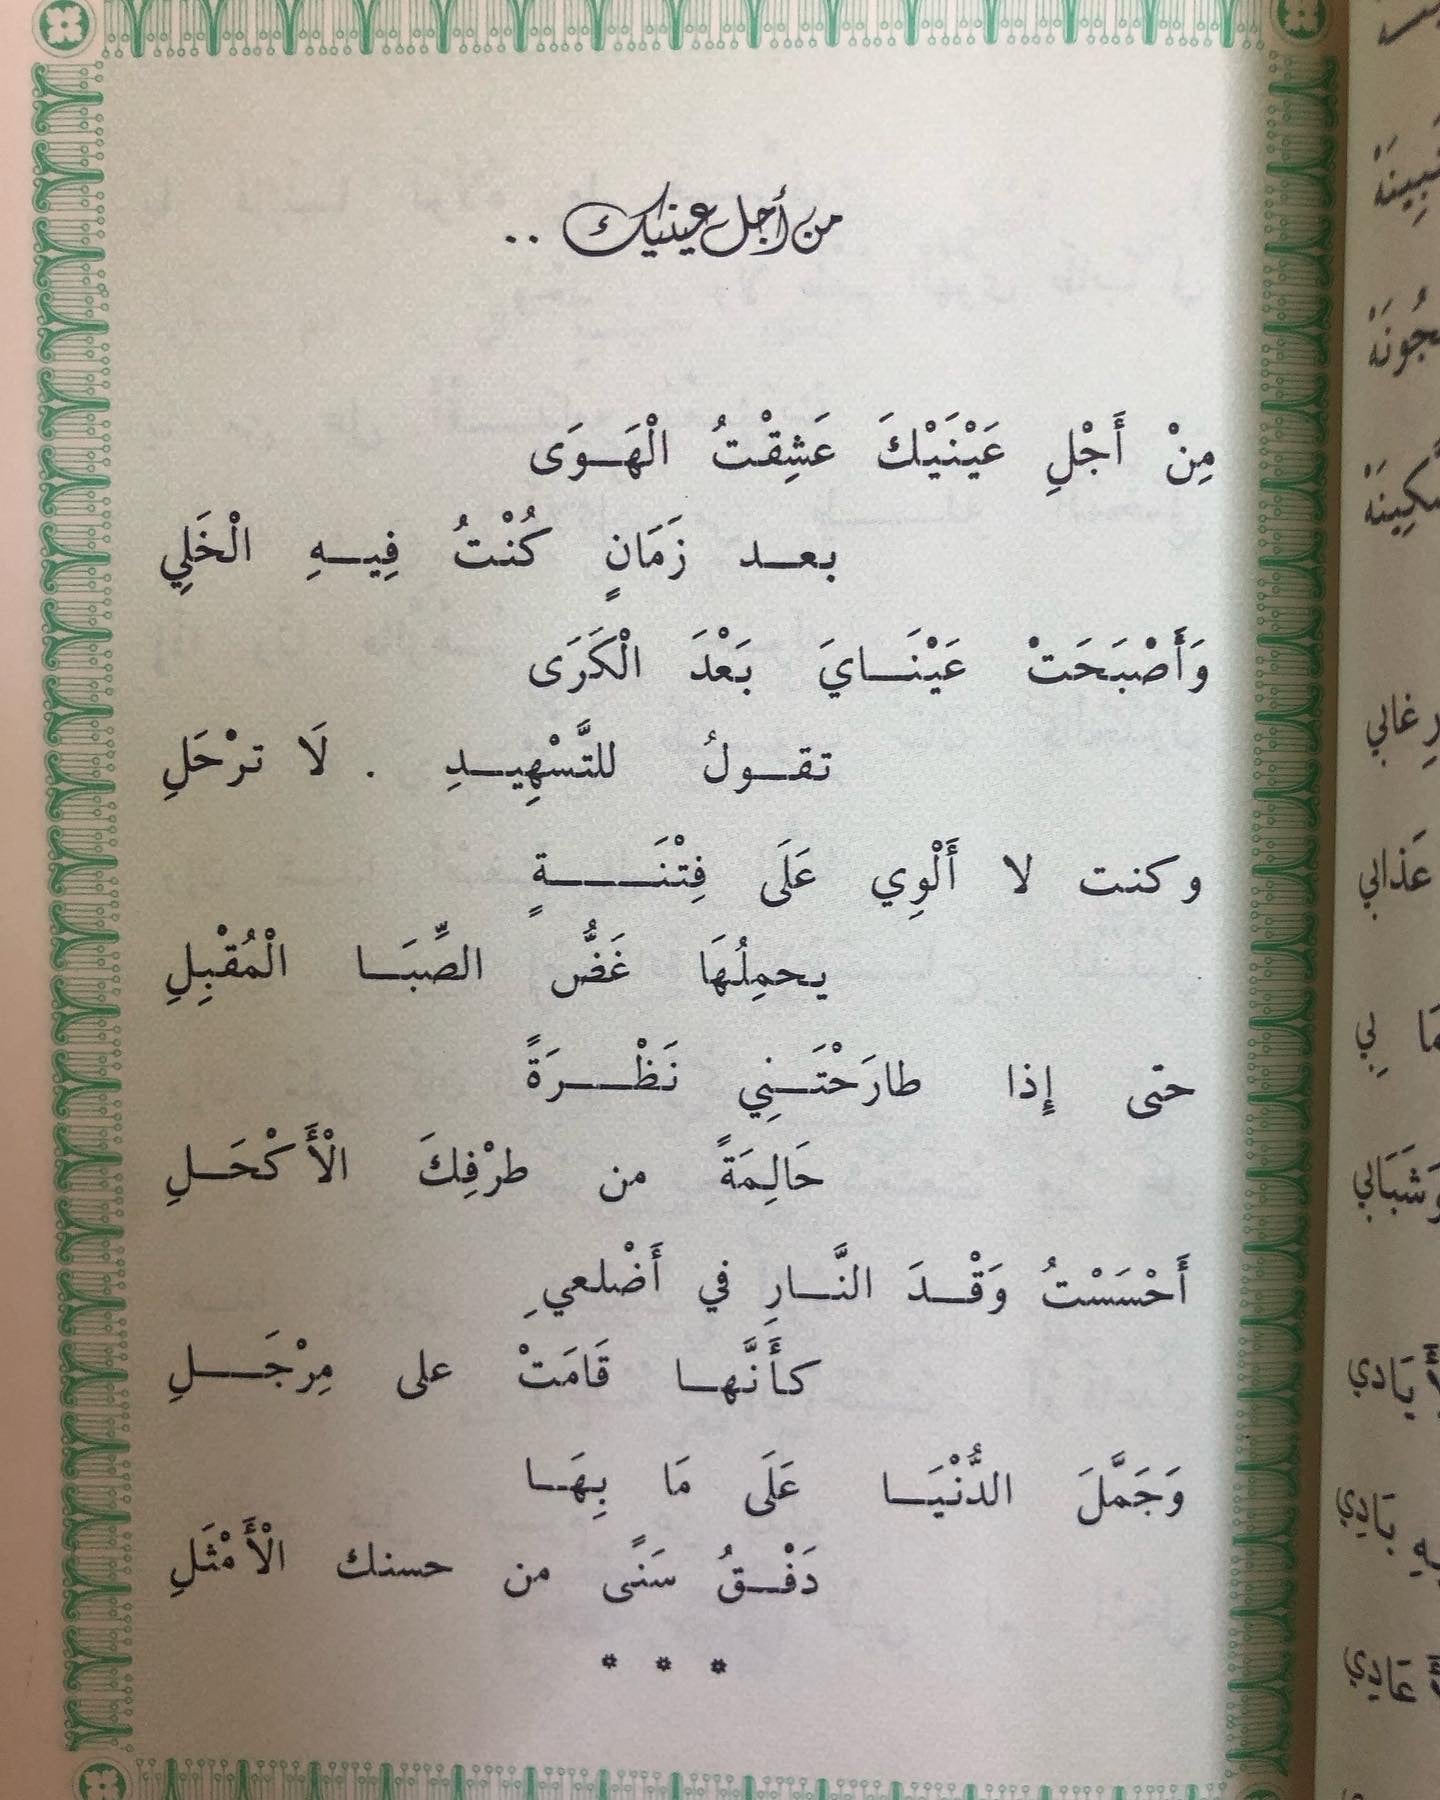 من أجل عينيك ..
مِنْ أَجْلِ عَيْنَيْكَ عَشِقْتُ الْهَـوَى
بعـد زَمَانٍ كُنْتُ فِيـهِ الْخَلِي
وَأَصْبَحَتْ عَيْنَـايَ بَعْدَ الْكَرَى
تقـولُ للتَّسْهِيـدِ . لَا ترْحَلِ
وكنت لا أَلْوِي عَلَى فِتْنَـــةٍ
يحمِلُهَا غَضُّ الصِّبَـا الْمُقْبِلِ
حتى إِذا طارَحْتَـنِي نَظْـرَةً
حَالِمَةً من طرْفِكَ الْأَكْحَـلِ
أَحْسَسْتُ وَقْـدَ النَّـارِ في أَضْلعيِ
كأَنَّهـا قَامَتْ على مِرْجَــلِ
وَجَمَّلَ الدُّنْيَـا عَلَى مَا بِهَـا
دَفْـقُ سَنًى من حسنك الْأَمْثَلِ
* * *
بِي
غابي
عَذابي
مَا بِي
وَشَبَابي
بَادِي